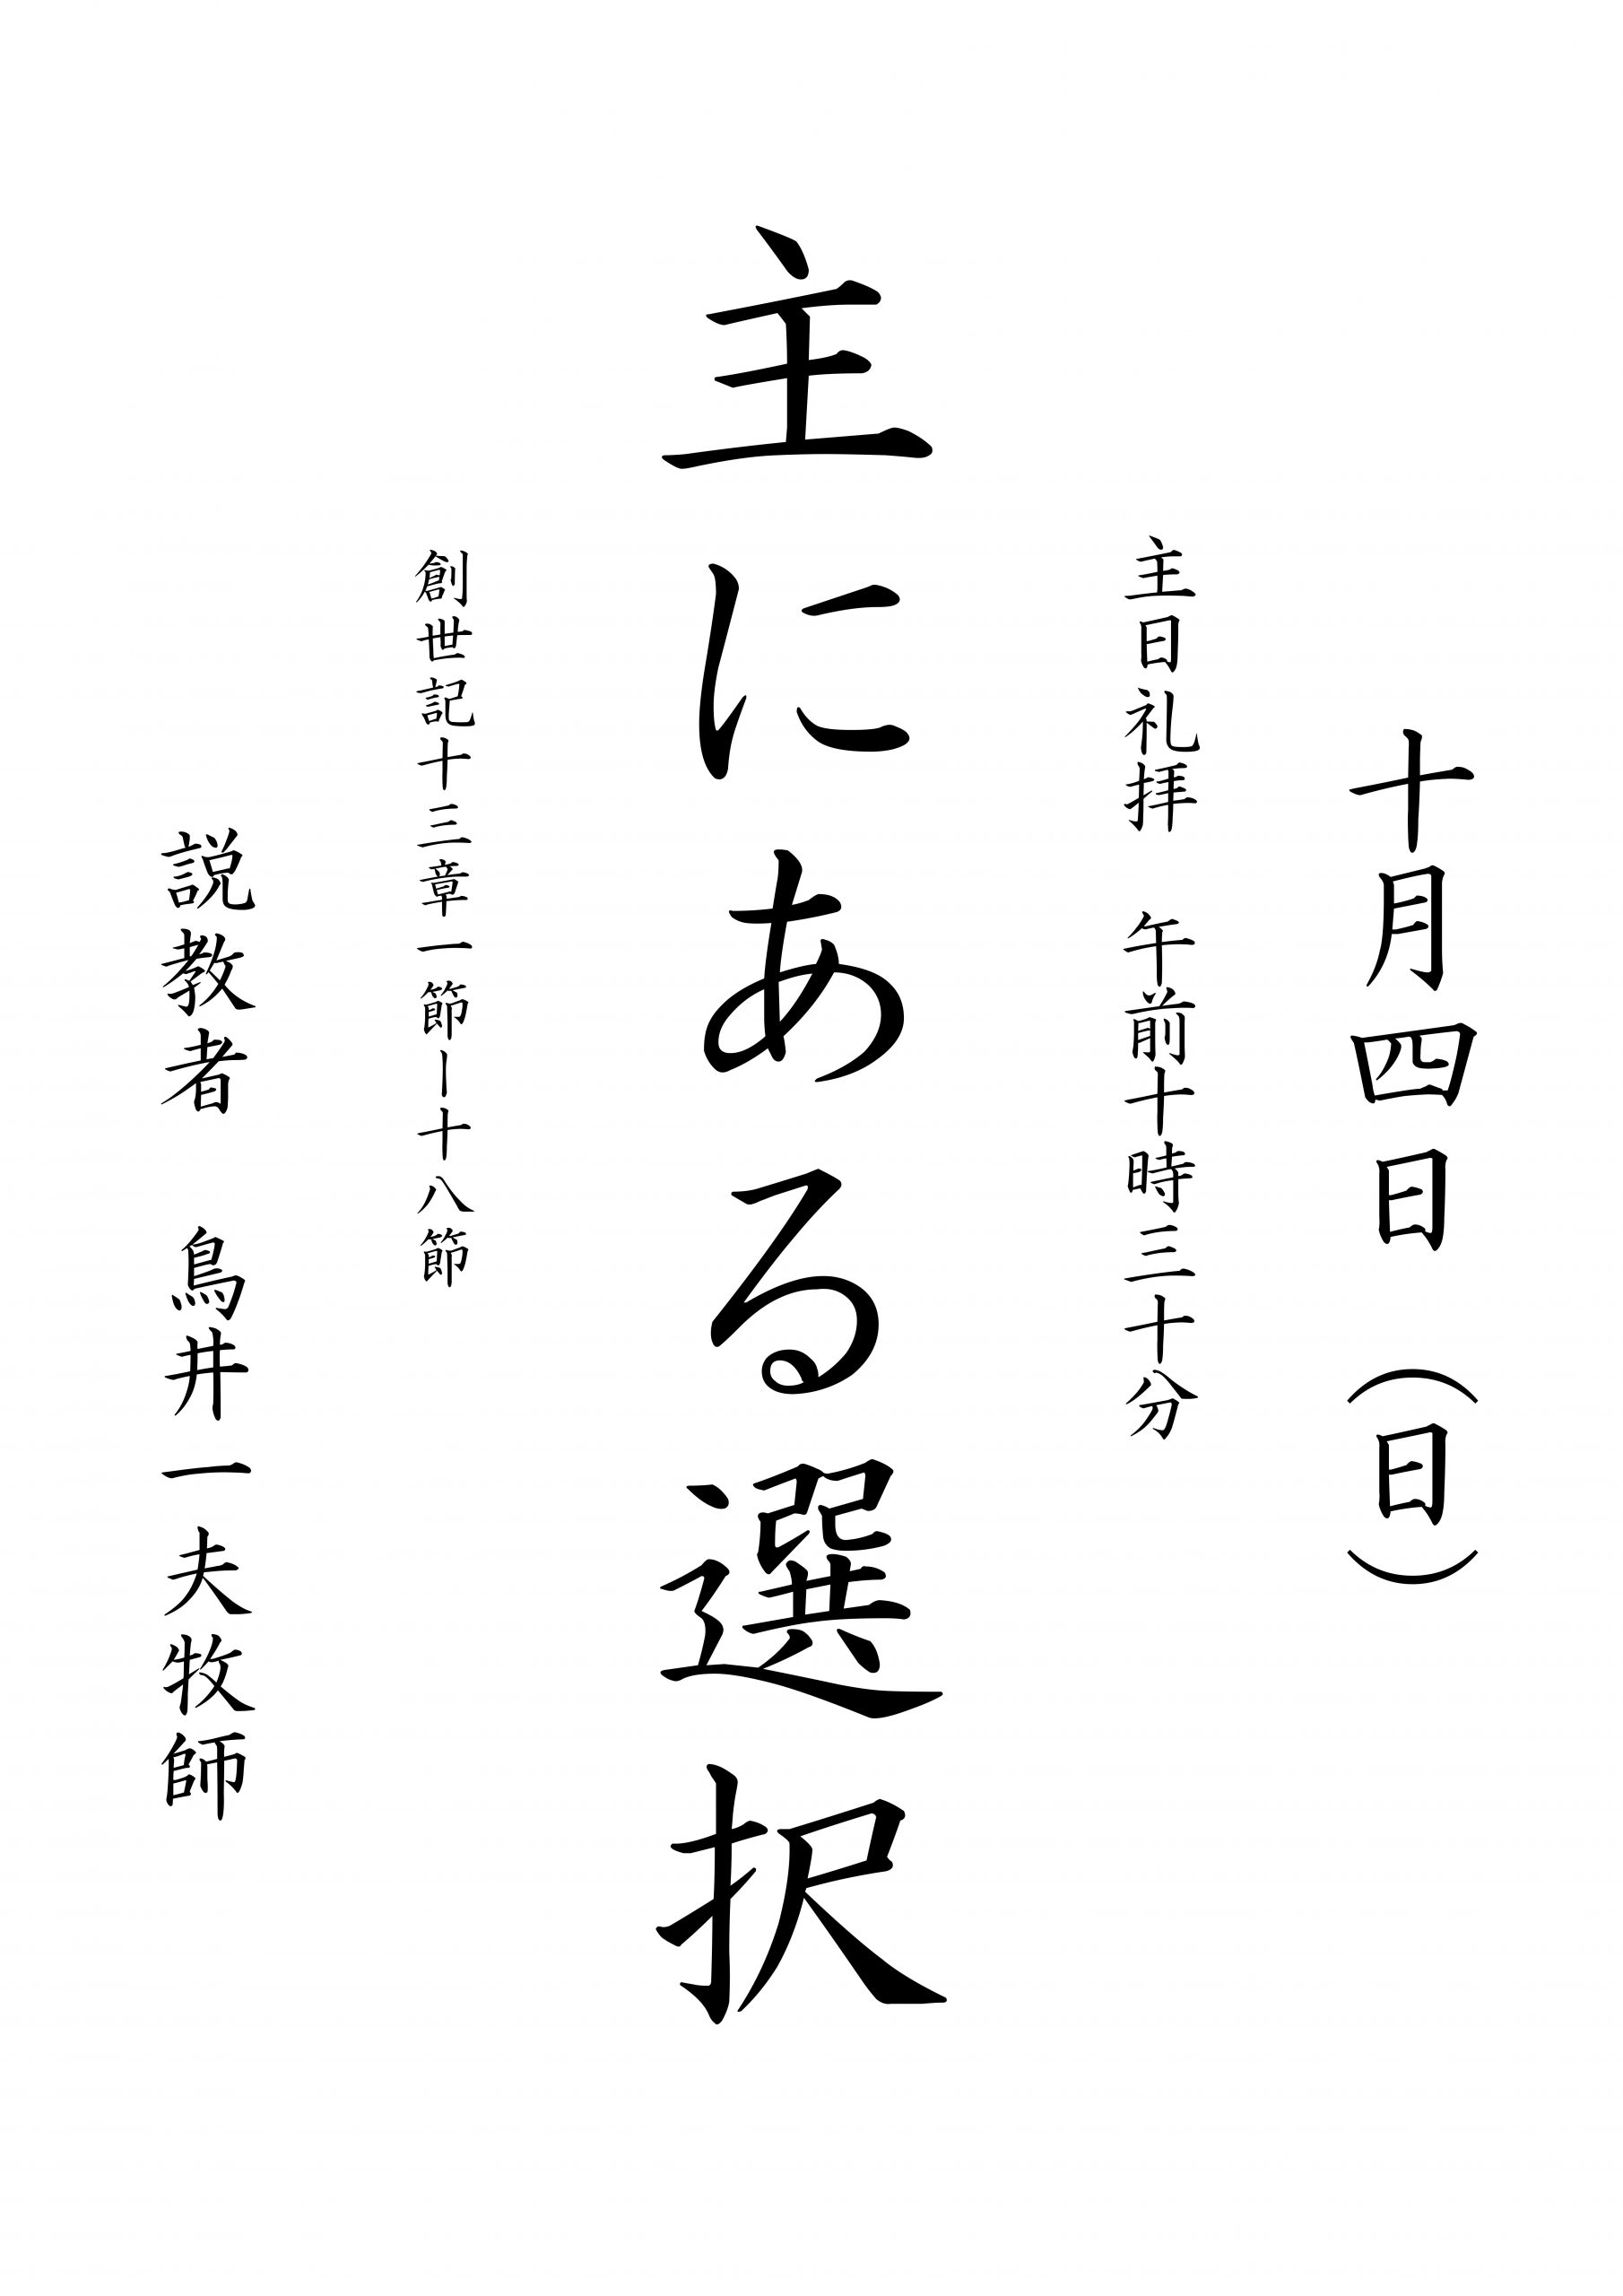 十月四日（日）
主日礼拝　午前十時三十分
主にある選択
創世記十三章一節ー十八節
説教者　鳥井一夫牧師